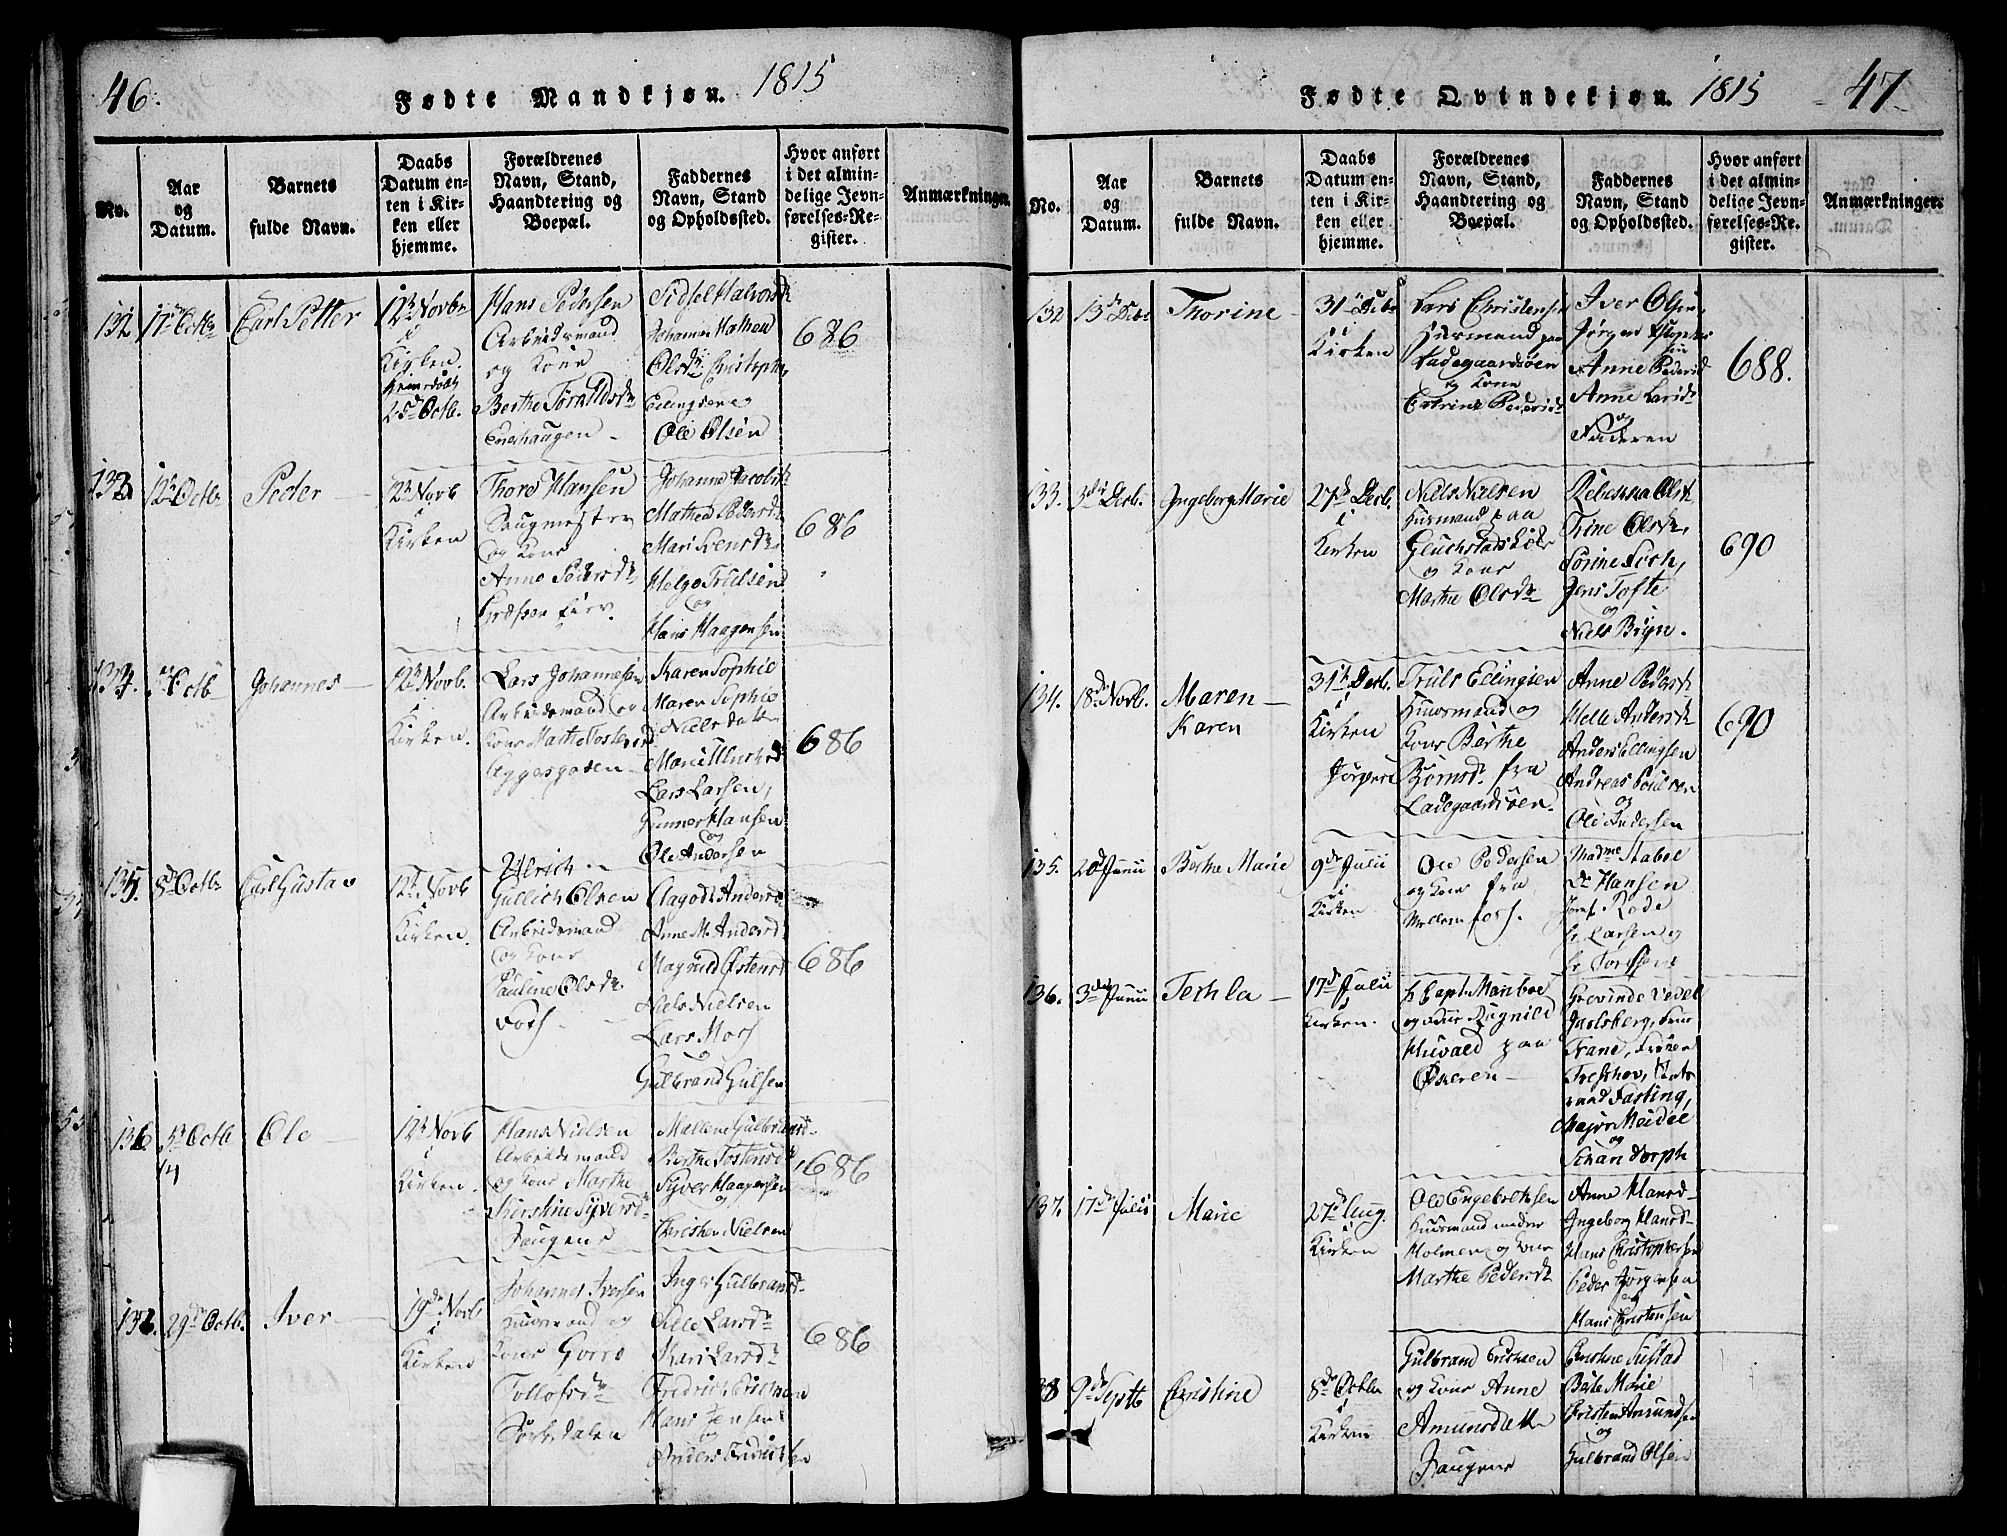 46.
Fødte Mandkjøn. 1815
No.
Aar
og
Datum.
Barnets
fulde Navn.
Daabs
Datum en-
ten i Kir-
ken eller
hjemme.
Forældrenes
Navn, Stand,
Haandtering og
Boepæl.
Faddernes
Navn, Stand
og Opholdssted.
Hvor anført
i det almin-
delige Jevn-
førelses-Re-
gister.
Anmærkninger.
132
17de Octbr
Carl Petter
12te Novbr
i
Kirken.
25de Octb.
Hans Pedersen
Arbeidsmand
og Kone
Berthe
Enehaugen
Johanne Mathea
Olsdr Christopher
Ellingsen og
Ole Olsen
686
133.
12te Octbr
Peder
12te Novb
i
Kirken
Thore Hansen
Saugmester
og Kone
Anne Pedersdr
Johanne Jacobsdr
Mathea Pedersdr
Mari Svensdr
Helge Trulsen
og
Hans Haagensen
686
134.
Octb
Johannes
12te Novb.
i
Kirken.
Lars Johannesen
Arbeidsmand og
Kone Marthe
Aggersgaden
Karen Sophie
Maren Sophie
Nielsdatter
Lars Larsen,
Gunner Hansen
og
Ole Andersen
686
135.
8de Octbr
Carl Gustav
12te Novb
i
Kirken.
Ulrich
Gullich Olsen
Arbeidsmand
og Kone
Pauline Olsdr.
Fors
Aagode Andersd
Anne M. Andersd.
Magnild Østensd
Niels Nielsen
Lars Mors
Gulbrand Gulsen
686
136
5te Octb
14
Ole
12te Novb
i
Kirken.
Hans Nielsen
Arbeidsmand
og Kone Marthe
Kirstine Syversdr
Haugene
Mallene Gulbrandsd-
Berthe Tostensdr
Syver Haagensen
og
Christen Nielsen
686
29de Octb.
Iver
19de Novb
i
Kirken
Johannes Iversen
Huusmand og
Kone Gorro
Tollofsdr
Sørkedalen
Inger Gulbrandsd-
Sille Larsdr
Kari Larsdr
Fredrich
Hans Jensen
og
Anders Fredriksen
686
Fødte Qvindekjøn. 1815
47
No.
Aar
og
Datum.
Barnets
fulde Navn.
Daabs
Datum en-
ten i Kir-
ken eller
hjemme.
Forældrenes
Navn, Stand,
Haandtering og
Boepæl.
Faddernes
Navn, Stand
og Opholdssted.
Hvor anført
i det almin-
delige Jevn-
førelses-Re-
gister.
Anmærkninger.
132
13de
Thorine
31te
i
Kirken
Lars Christensen
Huusmand paa
Ladegaardsøen
og Kone
Catrine Pedersdr
Iver Olsen,
Jørgen
Anne Pedersd
Anne Larsdr
og
Faderen
688.
133.
3die Decb.
Ingeborg Marie
27de Decb.
i
Kirken
Niels Nielsen
Huusmand paa
og Kone
Marthe Olsdr
Rebekka Olsdr
Trine Olsdr,
Jens Tofte
og
Niels Bryn.
690
134.
18de Novb.
Maren
Karen
31te Decb.
i
Kirken
Truls Ellingsen
Huusmand og
Kone Berthe
Bjørnsdr. fra
Ladegaardsøen.
Anne Pedersdr
Helle Andersdr
Anders Ellingsen
Andreas Poulsen
og
Ole Andersen
690
135.
20de Junii
Berthe Marie
9de Julii
i
Kirken
Ole Pedersen
og Kone fra
Mellem fors.
Madme Staboe
Dr Hansen
Jomf. Rode
hr Larsen og
136.
3die Junii
Techla
17de Julii
i
Kirken.
hr Capt. Manboe
og Frue Ragnild
Huvald paa
Grevinde Vedel
Jarlsberg, Frue
Trane, Frøken
Treschov,
raad Fasting,
Major Meidel
og
Schandorph
137.
17de Julii
Marie
27de Aug.
i
Kirken
Ole Engebrethsen
Huusmand under
Holmen og Kone
Marthe Pedersdr
Anne Hansd-
Ingeborg Hansd-
Hans Christophersen
Peder Jørgensen
og
Hans Christensen
138
9de Septb
Christine
8de Octbr
i
Kirken
Gulbrand Erichsen
og Kone Anne
Amundsdatter
Haugene
Berte Marie
Christen Amundsen
og
Gulbrand Olsen